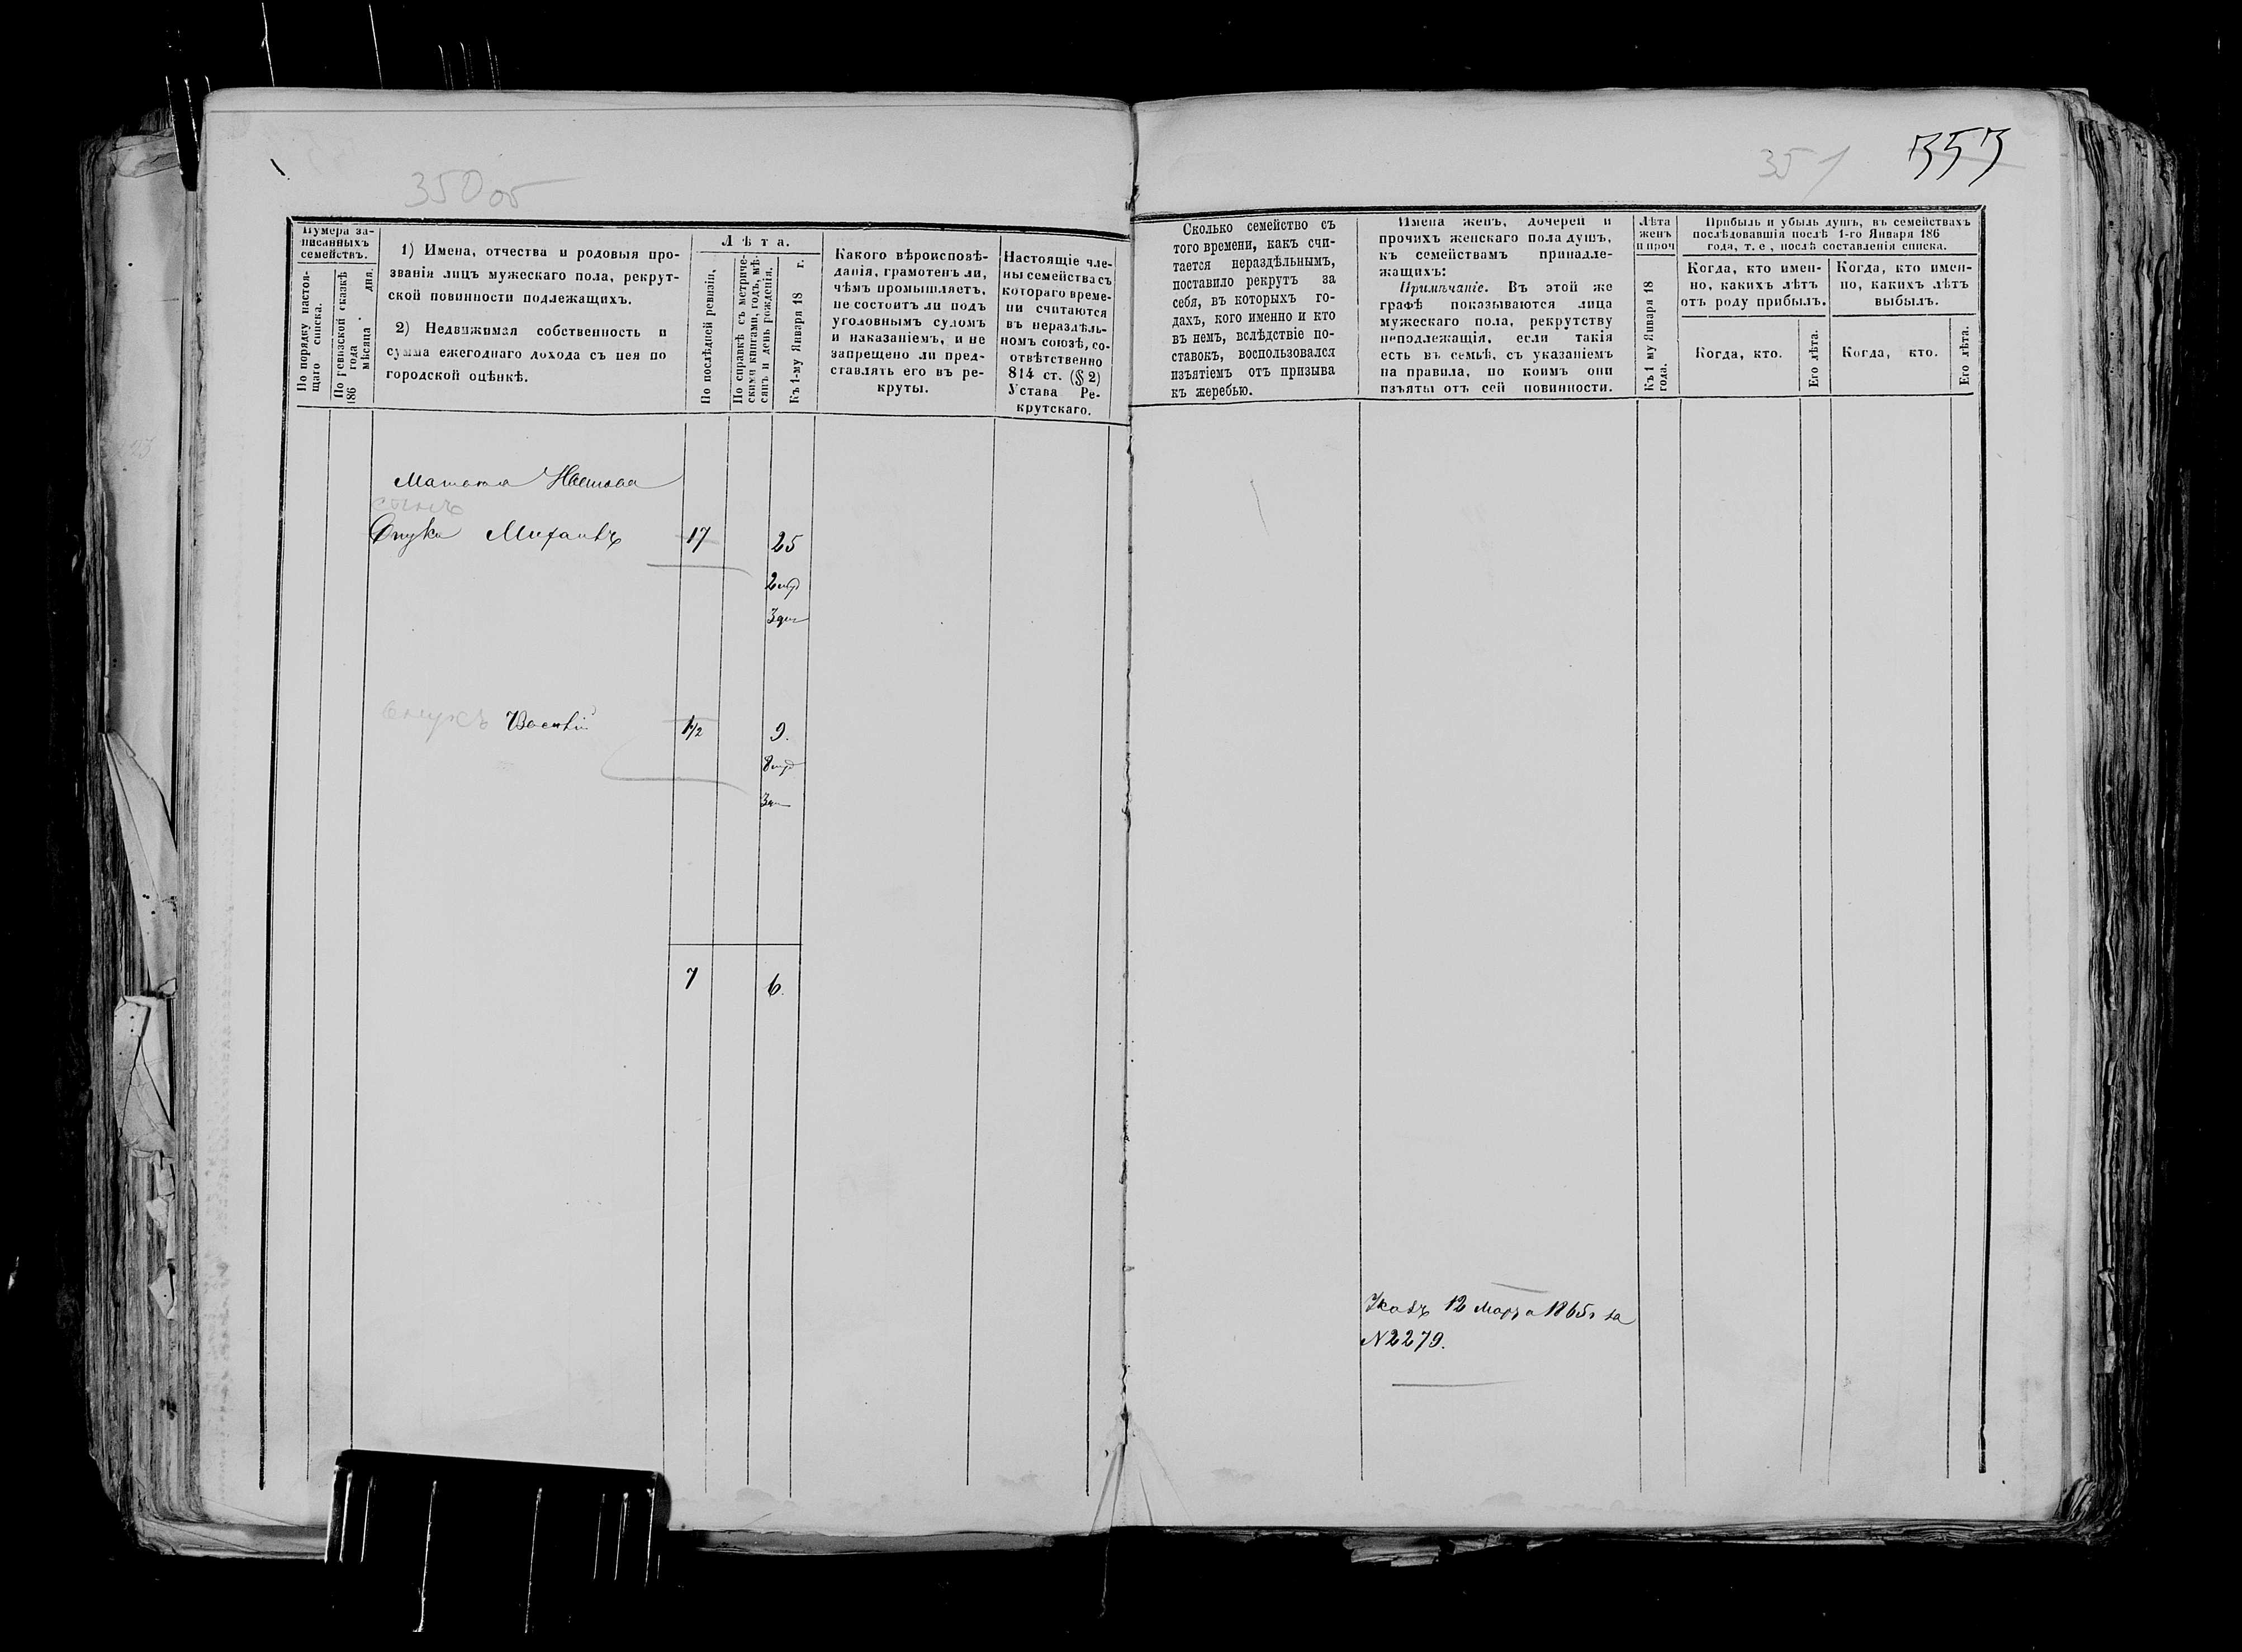 350 об
351
353
Нумера за-
писанныхъ
семействъ.
По порядку настоя-
щаго списка.
По ревизской сказкѣ
186 года
мѣсяца дня.
1) Имена, отчества и родовыя про-
званія лицъ мужескаго пола, рекрут-
ской повинности подлежащихъ.
2) Недвижимая собственность и
сумма ежегоднаго дохода съ нея по
городской оцѣнкѣ.
Лѣта.
По послѣдней ревизіи,
По справкѣ съ метриче-
скими книгами, годъ, мѣ-
сяцъ и день рожденія.
Къ 1-му Января 18 г.
Какого вѣроисповѣ-
данія, грамотенъ ли,
чѣмъ промышляетъ,
не состоитъ ли подъ
уголовнымъ судомъ
и наказаніемъ, и не
запрещено ли пред-
ставлять его въ ре-
круты.
Настоящіе чле-
ны семейства съ
котораго време-
ни считаются
въ нераздѣль-
номъ союзѣ, со-
отвѣтственно
814 ст. (§ 2)
Устава Ре-
крутскаго.
Сколько семейство съ
того времени, какъ счи-
тается нераздѣльнымъ,
поставило рекрутъ за
себя, въ которыхъ го-
дахъ, кого именно и кто
въ немъ, вслѣдствіе по-
ставокъ, воспользовался
изъятіемъ отъ призыва
къ жеребью.
Имена женъ, дочерей и
прочихъ женскаго пола душъ,
къ семействамъ принадле-
жащихъ:
Примѣчаніе. Въ этой же
графѣ показываются лица
мужескаго пола, рекрутству
неподлежащія, если такія
есть въ семьѣ, съ указаніемъ
на правила, по коимъ они
изъяты отъ сей повинности.
Лѣта
женъ
и проч
Къ 1 му Января 18
года.
Прибыль и убыль душъ, въ семействахъ
послѣдовавшія послѣ 1-го Января 186
года, т. е, послѣ составленія списка.
Когда, кто имен-
но, какихъ лѣтъ
отъ роду прибылъ.
Когда, кто.
Его лѣта.
Когда, кто имен-
но, какихъ лѣтъ
выбылъ.
Когда, кто.
Его лѣта.
сынъ
Михаилъ 17 25
внукъ Василій 1/2 9.
7 6.
Указъ 12 Марта 1865 г за
N 2279.